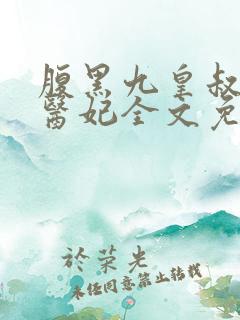 腹黑九皇叔
醫妃全文免
於荣光
未经同意禁止转载